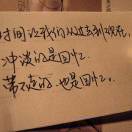 时间让我们从过去到现在,
冲淡的是回忆,
带不走的,也是回忆。